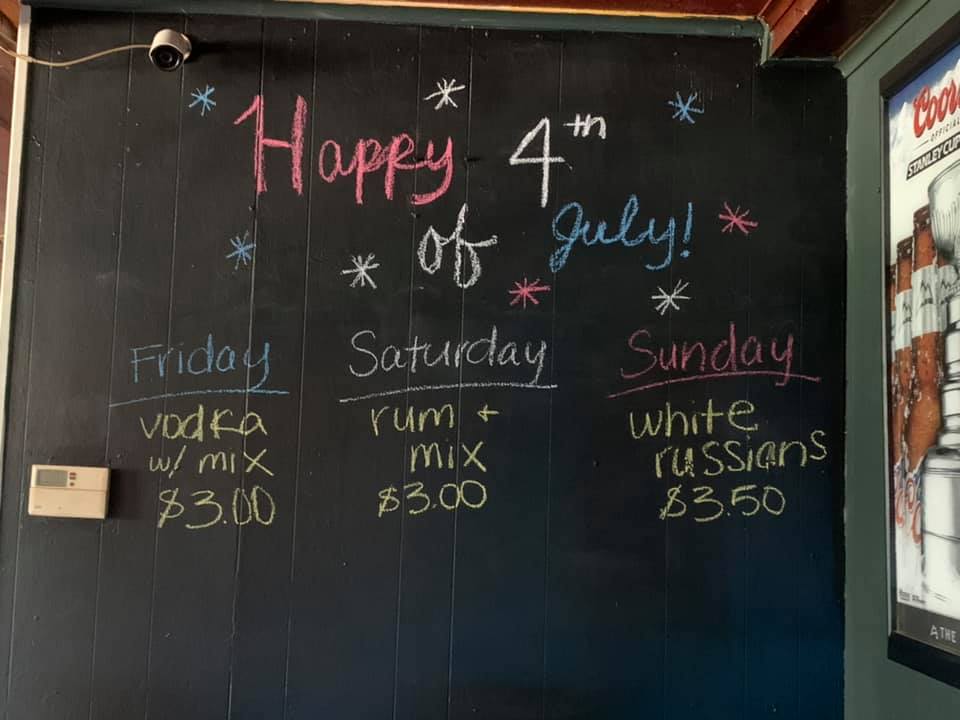 Happy 4th
of July!
Friday
vodka
w/ mix
$3.00
Saturday
rum +
mix
$3.00
Sunday
white
russians
$3.50
Coors
OFFICIAL
STANLEY CUP
THE